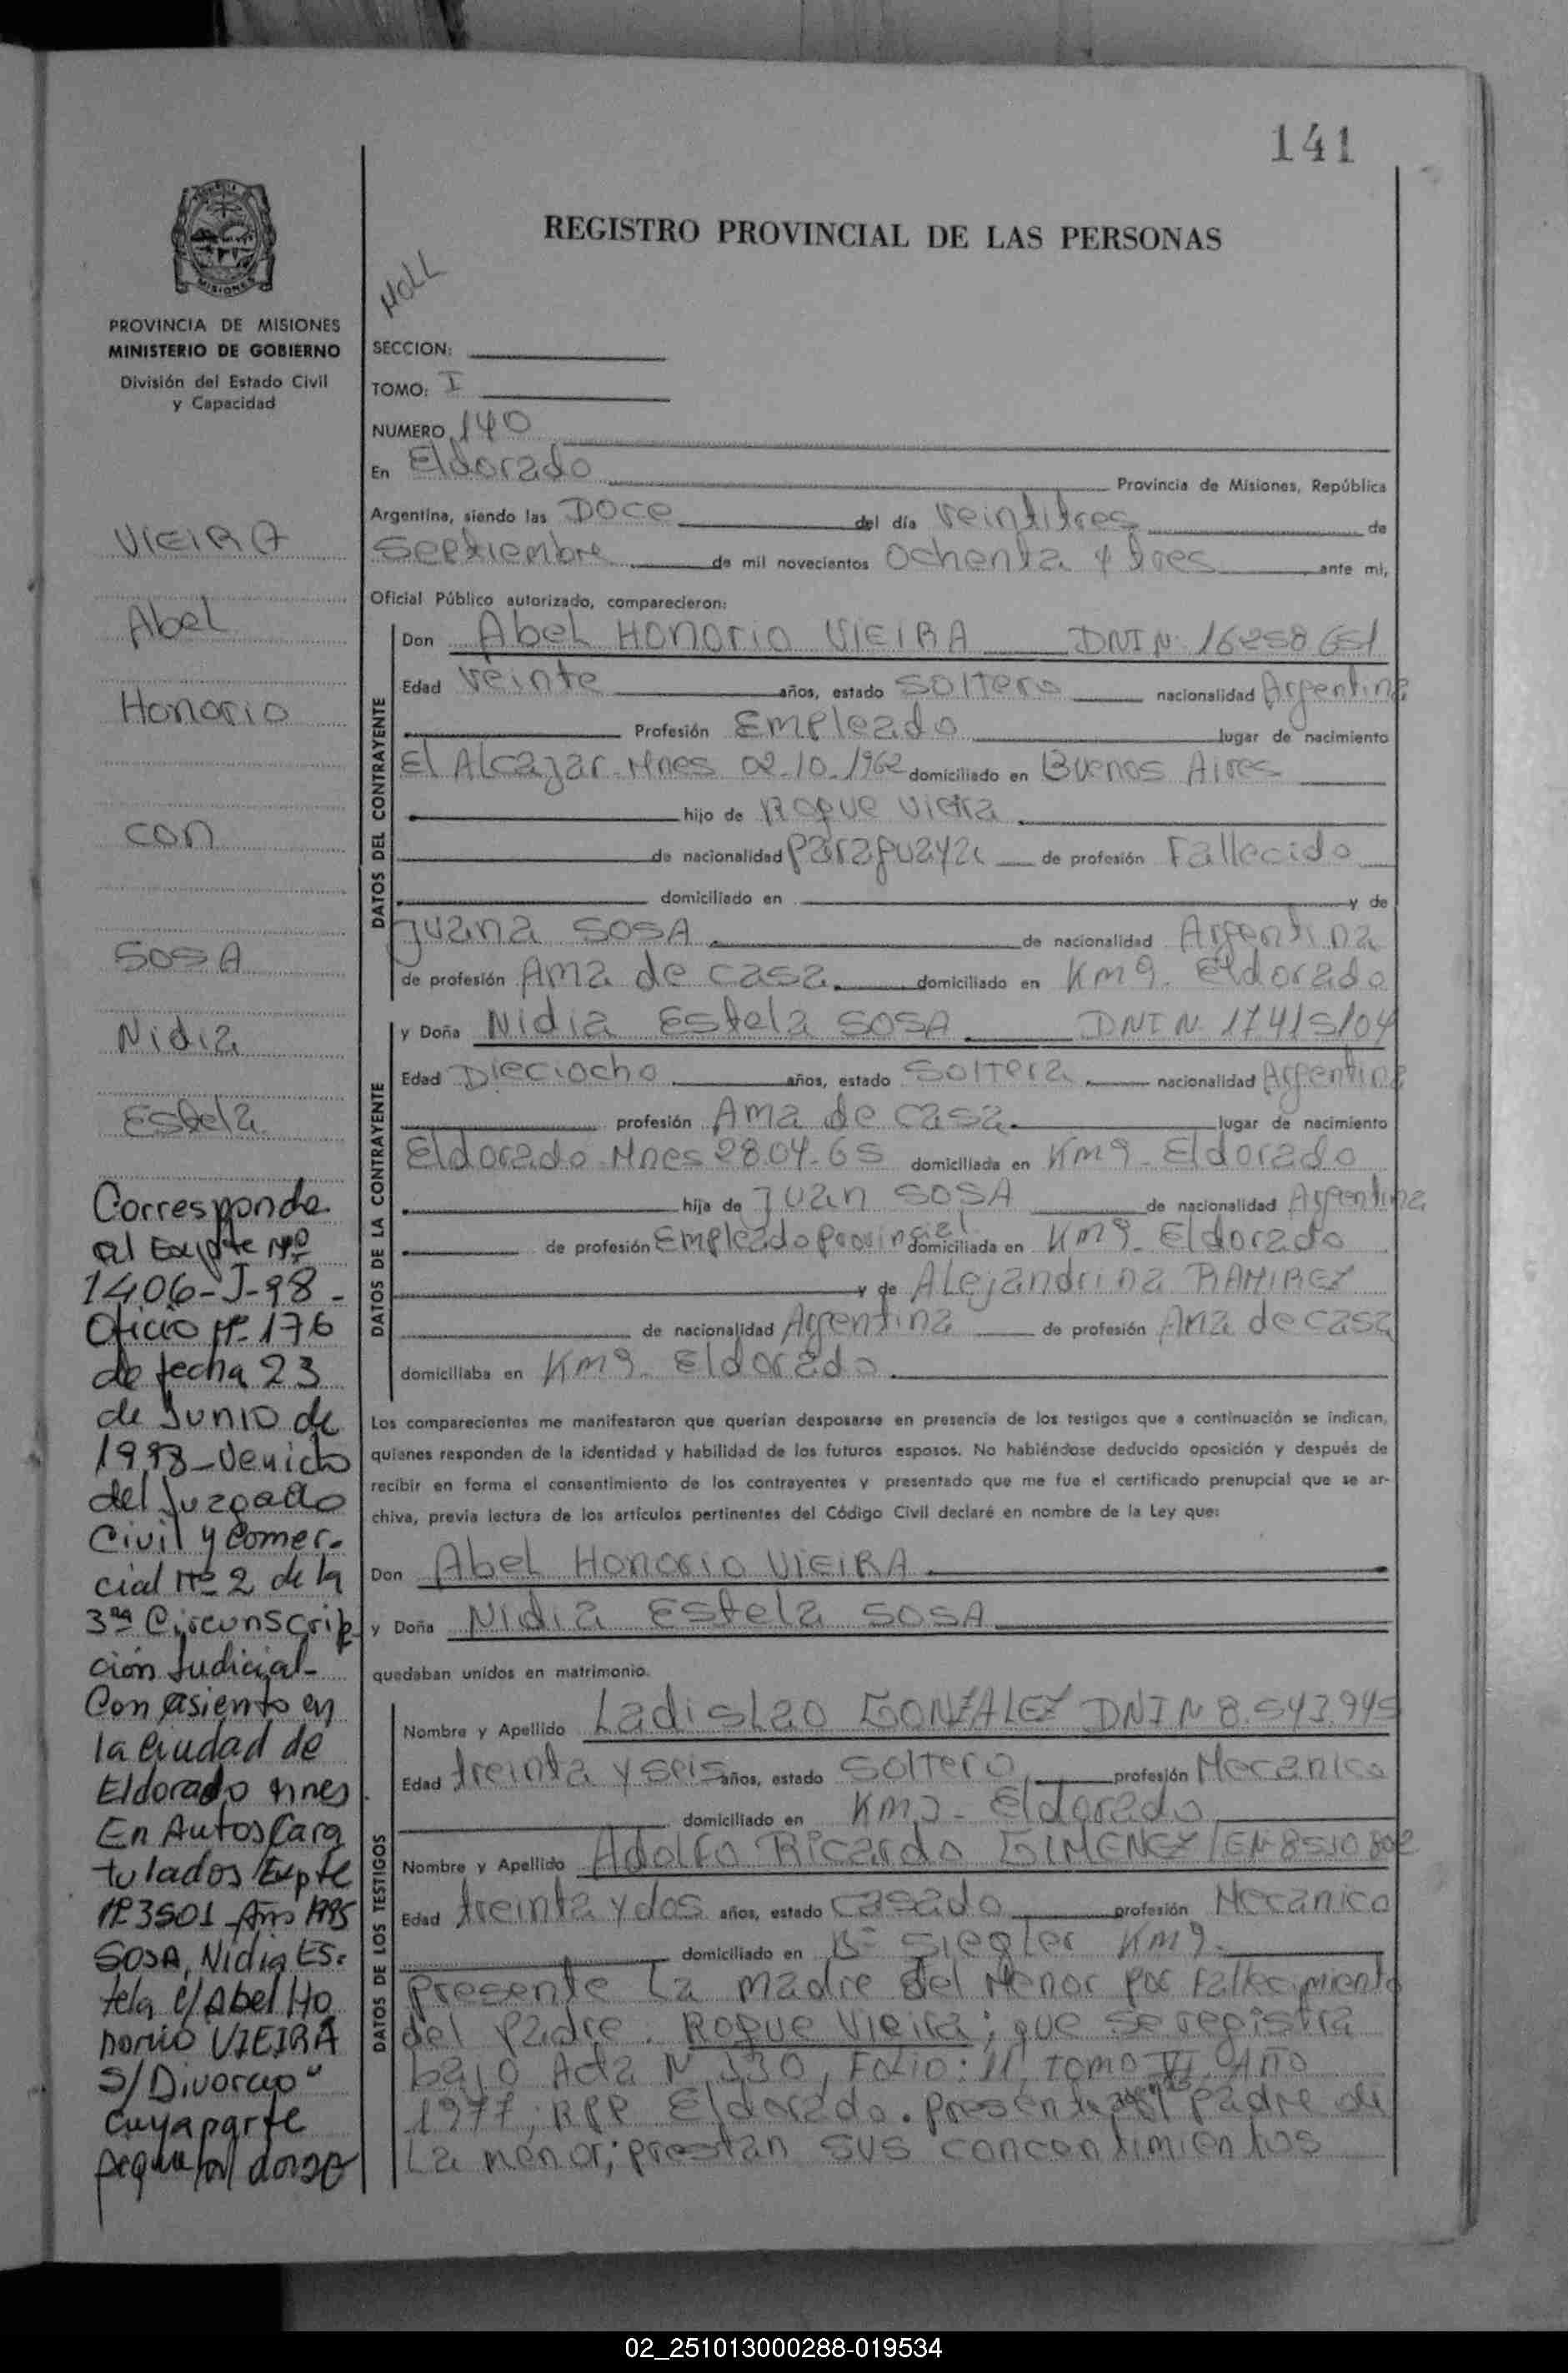 141
REGISTRO PROVINCIAL DE LAS PERSONAS
MISIONES
PROVINCIA DE MISIONES
MINISTERIO DE GOBIERNO
División del Estado Civil
y Capacidad
VIEIRA
Abel
Honorio
con
SOSA
Nidia
Estela
Corresponde
al Expte Nº
1406-J-98-
Oficio Nº 176
de fecha 23
de Junio de
1998-Venido
del Juzgado
Civil y Comer-
cial Nº 2 de la
3ra Circunscrip
ción Judicial-
Con asiento en
la Ciudad de
Eldorado Mnes
En Autos Cara
tulados Expte
Nº 3501 Año 1995
SOSA, Nidia Es-
tela c/ Abel Ho
norio VIEIRA
S/ Divorcio"
Cuya parte
dorso
SECCION:
TOMO: I
NUMERO 140
En Eldorado Provincia de Misiones, República
Argentina, siendo las Doce del día veintitres de
Septiembre de mil novecientos ochenta y tres ante mi,
Oficial Público autorizado, comparecieron:
DATOS DEL CONTRAYENTE
Don Abel Honorio VIEIRA DNI N 16258651
Edad veinte años, estado soltero nacionalidad Argentina
Profesión Empleado lugar de nacimiento
El Alcazar-Mnes 02-10-1962 domiciliado en Buenos Aires
hijo de Roque Vieira
de nacionalidad Paraguaya de profesión Fallecido
domiciliado en y de
Juana SOSA de nacionalidad Argentina
de profesión Ama de casa domiciliado en Km 9- Eldorado
DATOS DE LA CONTRAYENTE
y Doña Nidia Estela SOSA DNI N 17415104
Edad Dieciocho años, estado soltera nacionalidad Argentina
profesión Ama de casa lugar de nacimiento
Eldorado-Mnes 28-04-65 domiciliada en Km 9- Eldorado
hija de Juan SOSA de nacionalidad Argentina
de profesión Empleado Provincial domiciliada en Km 9- Eldorado
y de Alejandrina RAMIREZ
de nacionalidad Argentina de profesión Ama de casa
domiciliaba en Km 9- Eldorado
Los comparecientes me manifestaron que querían desposarse en presencia de los testigos que a continuación se indican,
quienes responden de la identidad y habilidad de los futuros esposos. No habiéndose deducido oposición y después de
recibir en forma el consentimiento de los contrayentes y presentado que me fue el certificado prenupcial que se ar-
chiva, previa lectura de los artículos pertinentes del Código Civil declaré en nombre de la Ley que:
Don Abel Honorio VIEIRA
y Doña Nidia Estela SOSA
quedaban unidos en matrimonio.
DATOS DE LOS TESTIGOS
Nombre y Apellido Ladislao GONZALEZ DNI N 8.543.945
Edad treinta y seis años, estado soltero profesión Mecanico
domiciliado en Eldorado
Nombre y Apellido Adolfo Ricardo GIMENEZ LEN 8510802
Edad treinta y dos años, estado casado profesión Mecanico
domiciliado en Bº Siegler Km 9-
presente La madre del Menor por Fallecimiento
del Padre. Roque Vieira; que se registra
bajo Acta N 330, Folio: 11, Tomo VI, Año
1977; RPP Eldorado. presente padre de
La menor; prestan sus concentimientos
02_251013000288-019534